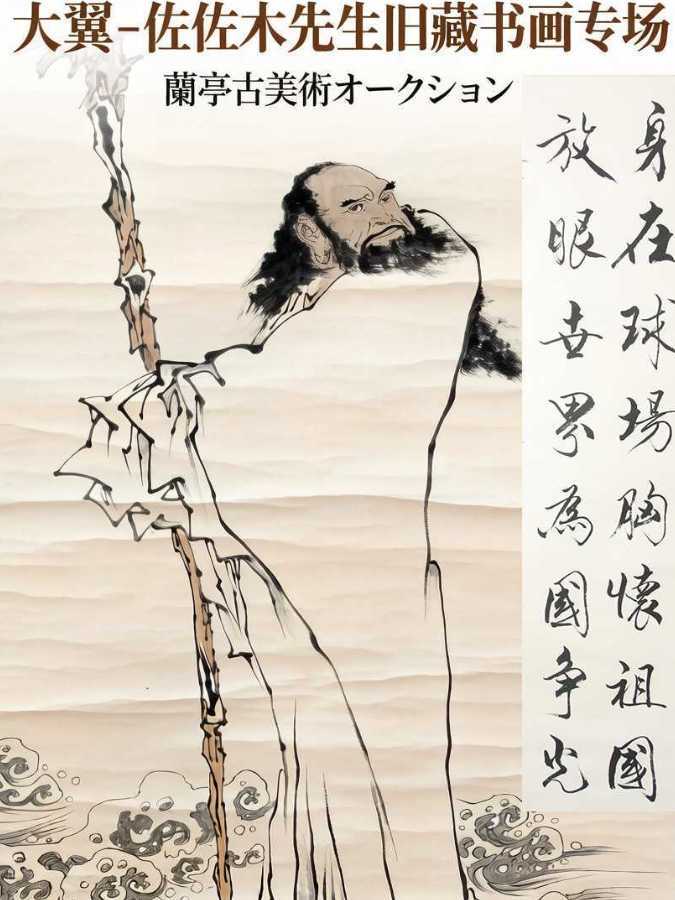 大翼-佐佐木先生旧藏书画专场
蘭亭古美術オークション
身在球場胸懷祖國
放眼世界為國争光